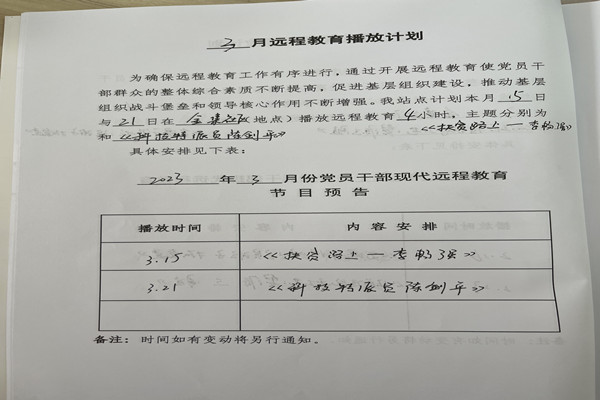 3月远程教育播放计划
为确保远程教育工作有序进行，通过开展远程教育使党员干
部群众的整体综合素质不断提高，促进基层组织建设，推动基层
组织战斗堡垒和领导核心作用不断增强。我站点计划本月 15 日
与 21 日在 (地点）播放远程教育 4 小时，主题分别为《扶贫路上—李畅强》
和《科技特派员陈剑平》
具体安排见下表：
2023 年 3 月份党员干部现代远程教育
节目预告
播放时间 内容安排
3.15 《扶贫路上—李畅强》
3.21 《科技特派员陈剑平》
备注：时间如有变动将另行通知。